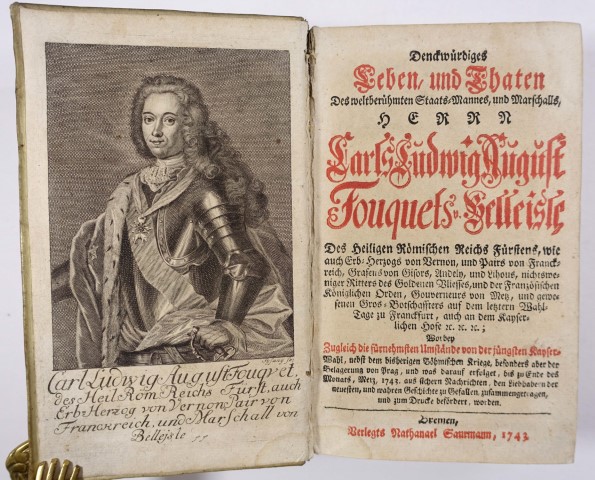 Carl Ludwig August Fouqvet,
des Heil. Rom. Reichs Fürst, auch
Erb Herzog von Vernon, Pair von
Franckreich, und Marschall von
Bellejsle
Denckwürdiges
Leben, und Thaten
Des weltberühmten Staats-Mannes, und Marschalls,
HERRN
Carls Ludwig August
Fouquets v. Belleisle,
Des Heiligen Römischen Reichs Fürstens, wie
auch Erb-Herzogs von Vernon, und Pairs von Franck-
reich, Grafens von Gisors, Andely, und Lihous, nichtswe-
niger Ritters des Goldenen Vliesses, und der Französischen
Königlichen Orden, Gouverneurs von Metz, und gewe-
senen Gros-Botschafters auf dem letztern Wahl-
Tage zu Franckfurt, auch an dem Kayser-
lichen Hofe ꝛc. ꝛc. ꝛc. ;
Worbey
Zugleich die fürnehmsten Umstände von der jüngsten Kayser-
Wahl, nebst den bisherigen Böhmischen Kriege, besonders aber der
Belagerung von Prag, und was darauf erfolget, bis zu Ende des
Monats, Merz, 1743. aus sichern Nachrichten, den Liebhabern der
neuesten, und wahren Geschichte zu Gefallen zusammengetragen,
und zum Drucke befördert, worden.
Bremen,
Verlegts Nathanael Saurmann, 1743.